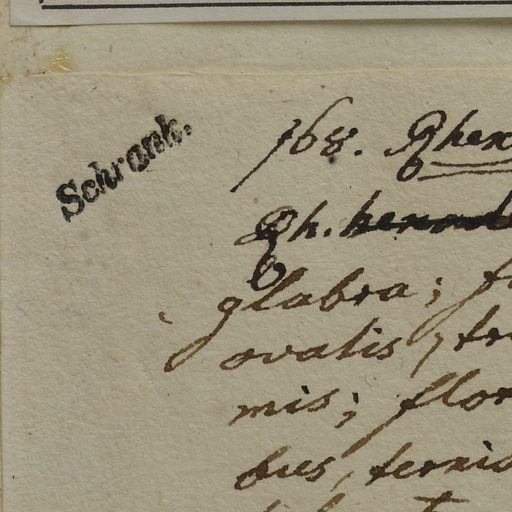 Schrank.
768. Rhex
Rh.
glabra; f
ovalis, tr
mis; flor
bus, ternis